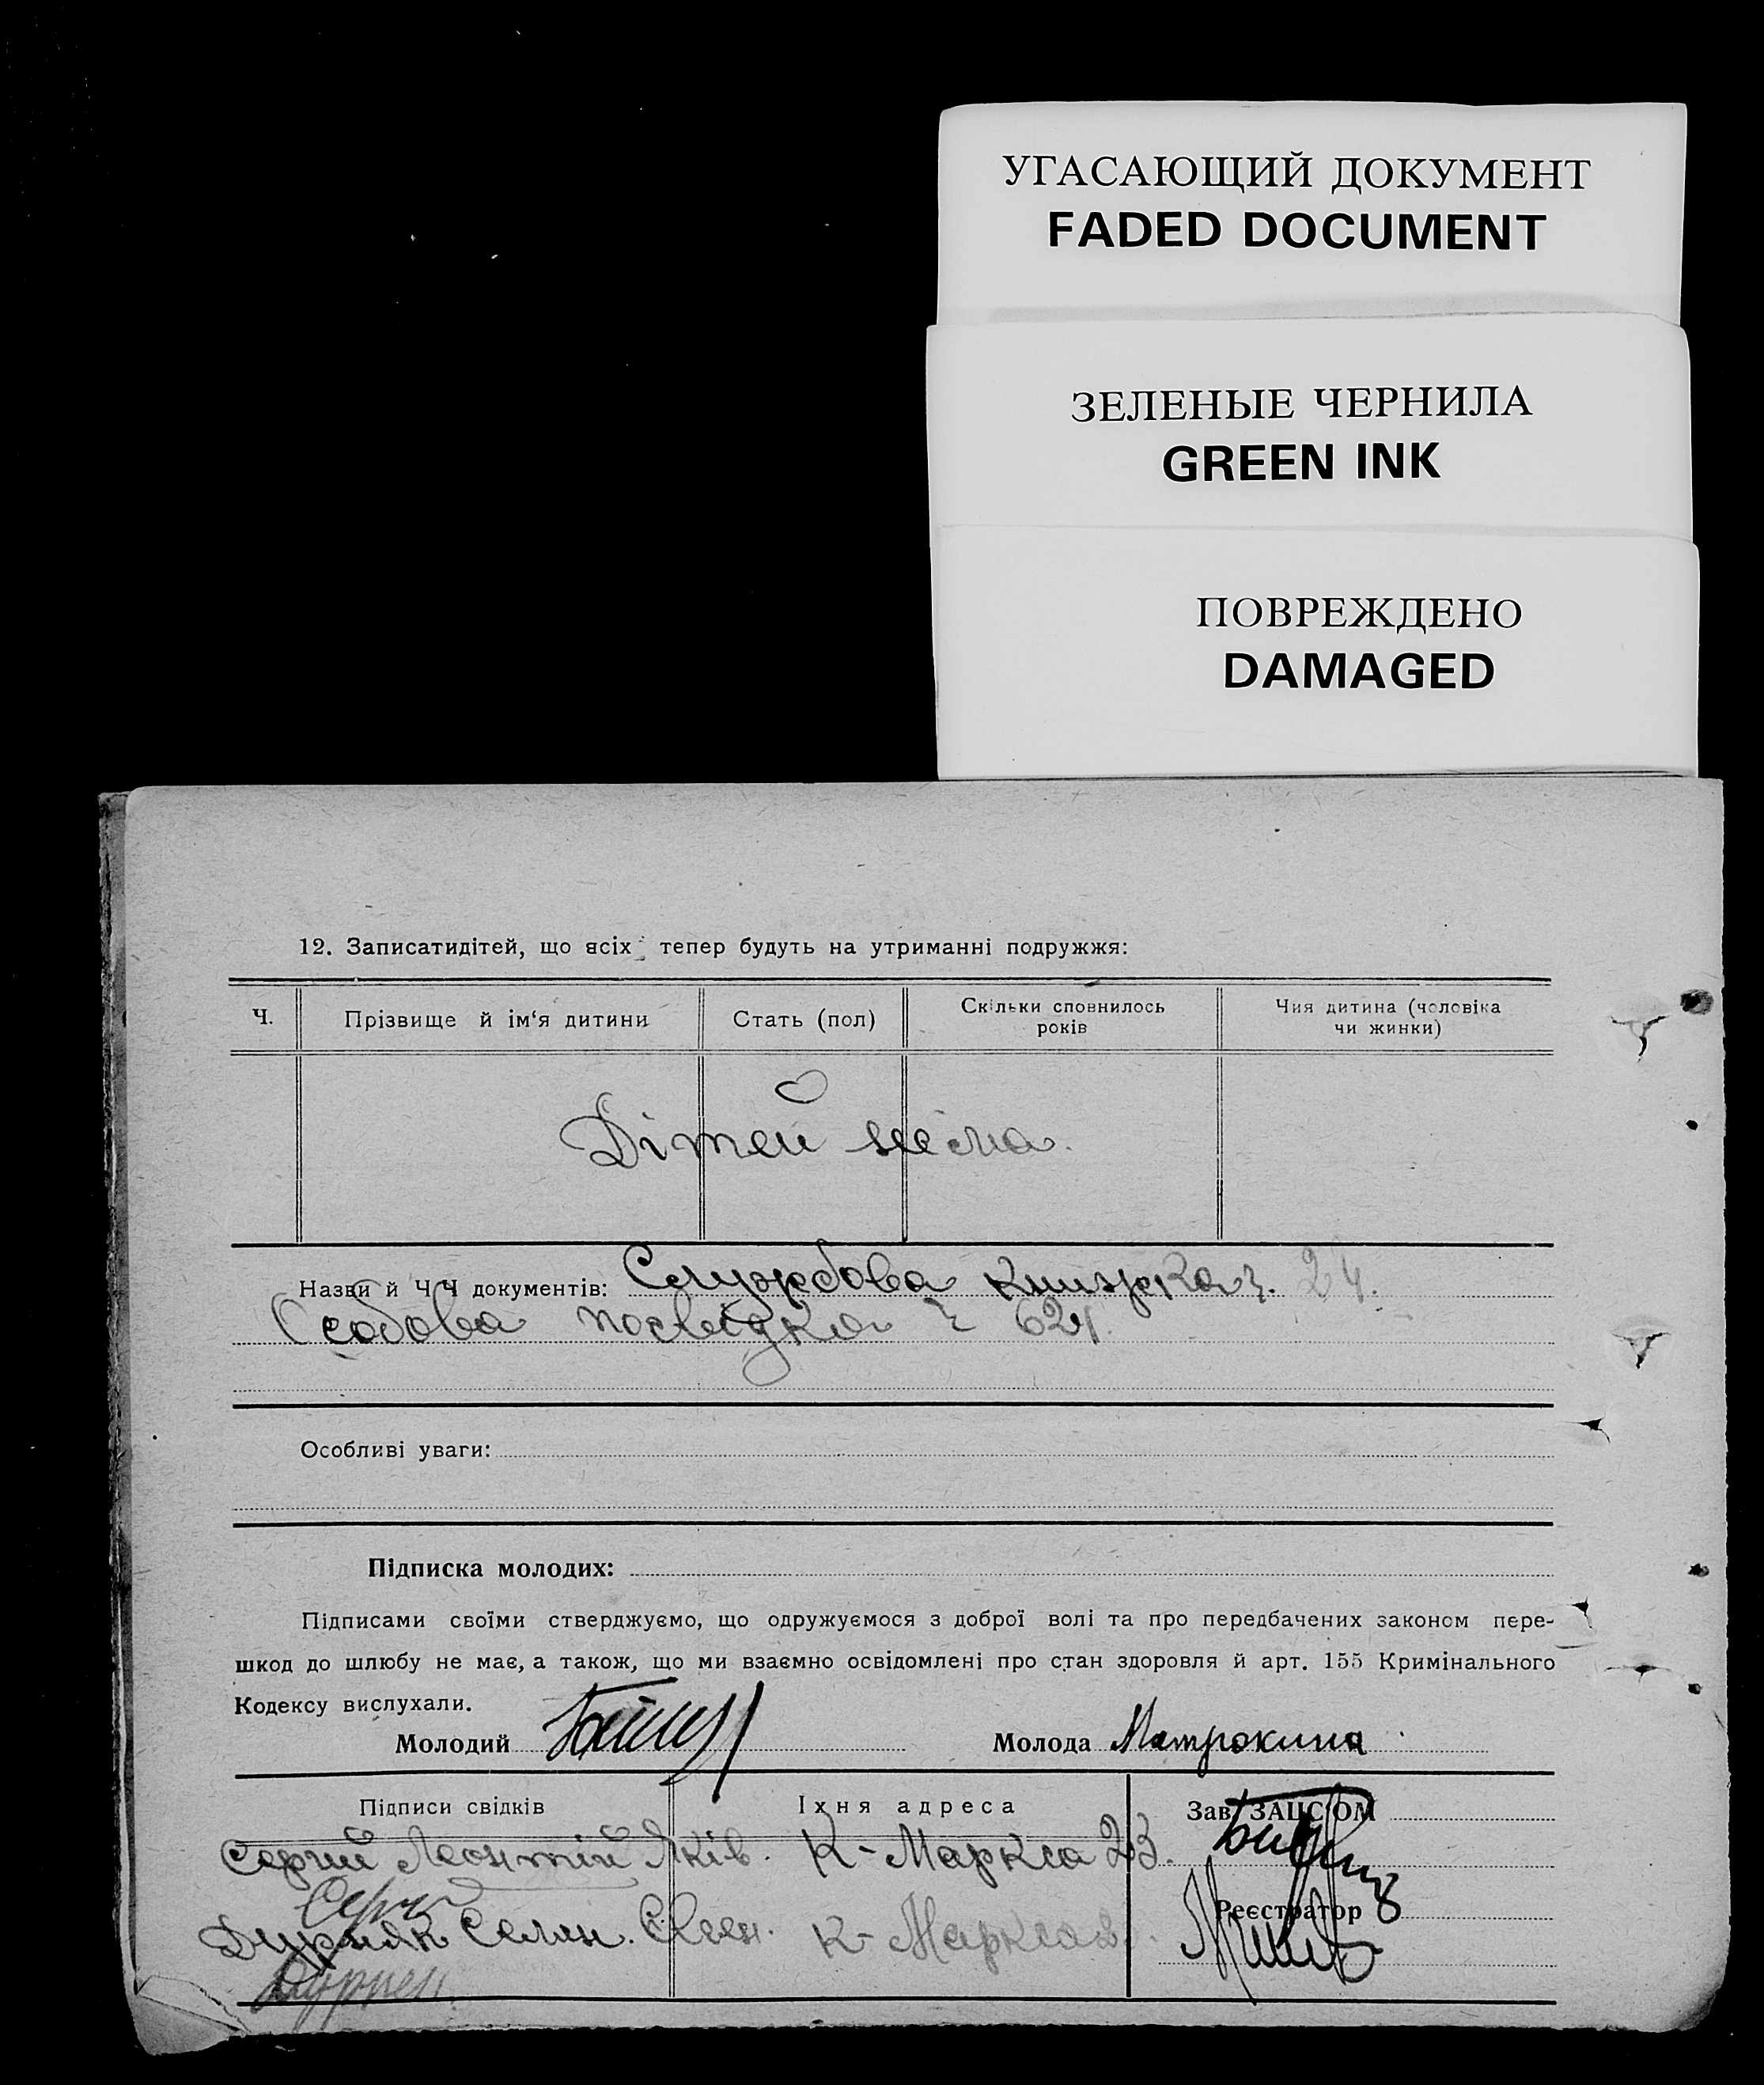 УГАСАЮЩИЙ ДОКУМЕНТ
FADED DOCUMENT
ЗЕЛЕНЫЕ ЧЕРНИЛА
GREEN INK
ПОВРЕЖДЕНО
DAMAGED
12. Записатидітей, що всіх тепер будуть на утриманні подружжя:
Ч.
Прізвище й ім‘я дитини
Стать (пол)
Скільки сповнилось
років
Чия дитина (чоловіка
чи жинки)
Дітей нема.
Назви й Ч Ч документів: Службова книжка ч. 24.
Особова посвідка ч 624.
Особливі уваги:
Підписка молодих:
Підписами своїми стверджуємо, що одружуємося з доброї волі та про передбачених законом пере-
шкод до шлюбу не має, а також, що ми взаємно освідомлені про стан здоровля й арт. 155 Кримінального
Кодексу вислухали.
Молодий
Молода Матрокина
Підписи свідків
Їхня адреса
Зав. ЗАЦС'ОМ
Сергій Леонтій Яків. К-Маркса 23.
Реєстратор
К-Маркса